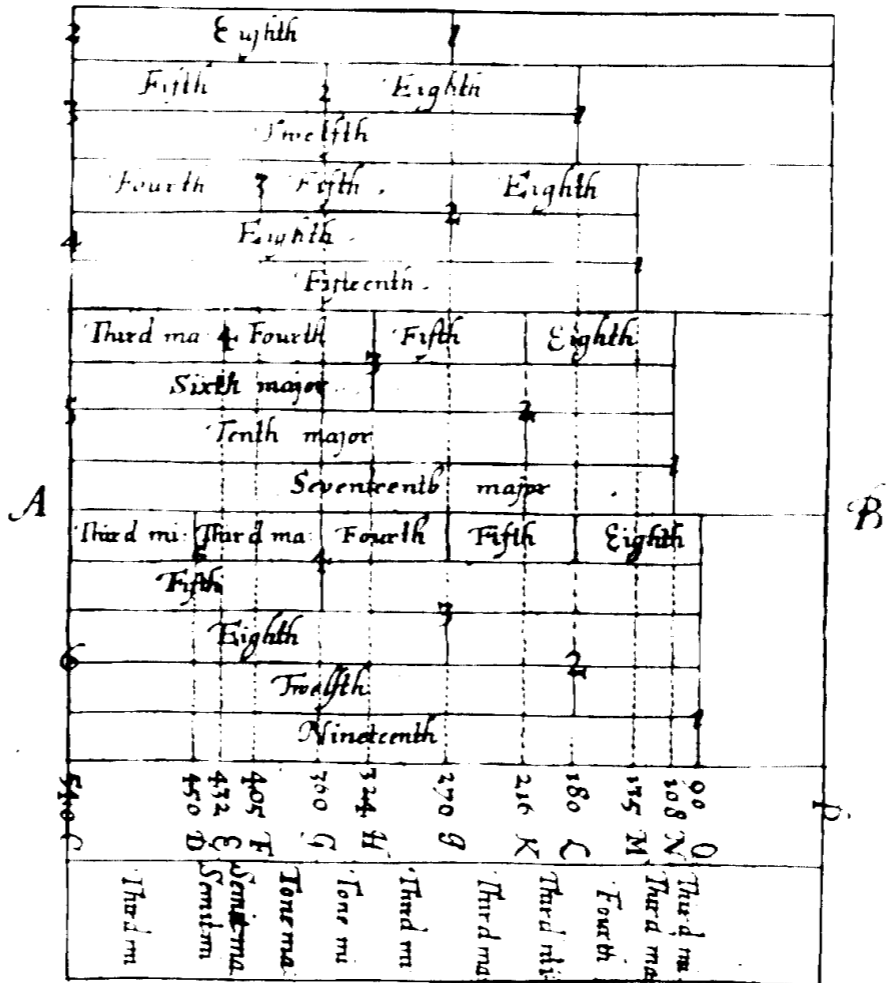 2 Eighth 1
Fifth 2 Eighth
3 1
Twelfth
Fourth 3 Fifth Eighth
2
4 Eighth
1
Fifteenth
Third ma 4 Fourth Fifth Eighth
3
Sixth major
5 2
Tenth major
1
Seventeenth major
A B
Third mi Third ma Fourth Fifth Eighth
5 4
Fifth
3
Eighth
6 2
Twelfth
1
Nineteenth
540 450 432 405 360 324 270 216 180 135 108 90
C D E F G H K L M N O P
Third mi Semit mi Semit ma Tone ma Tone mi Third mi Third ma Third mi Fourth Third ma Third mi